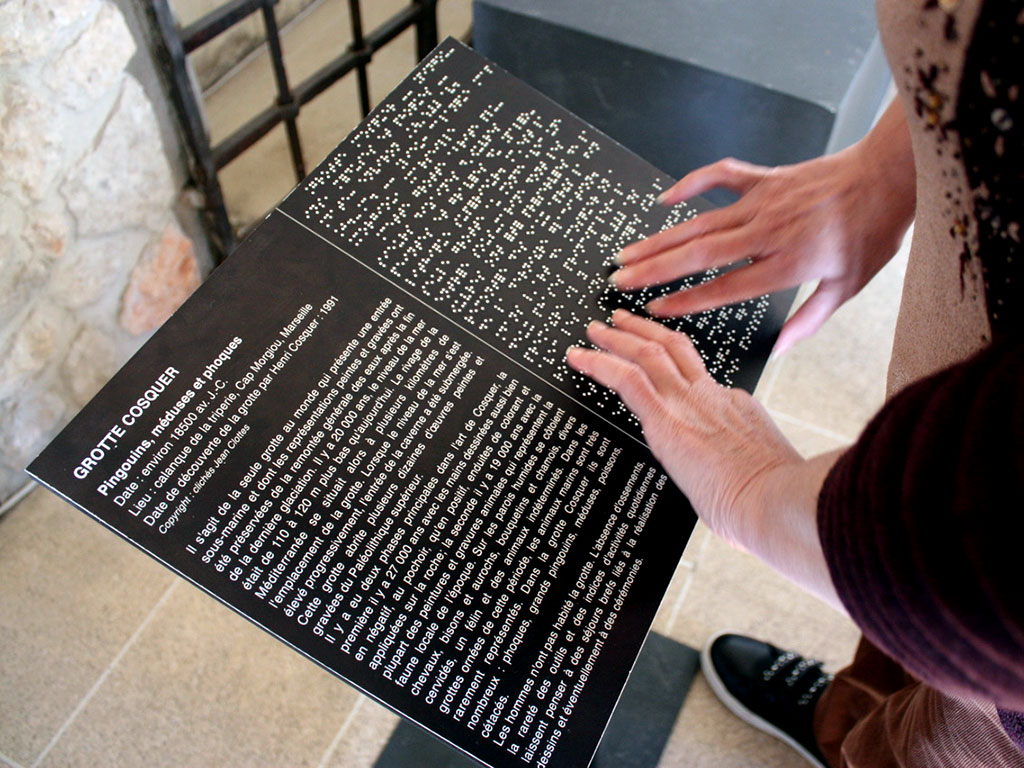 GROTTE COSQUER
Pingouins, méduses et phoques
Date : environ 18500 av. J.-C.
Lieu : calanque de la triperie, Cap Morgiou, Marseille
Date de découverte de la grotte par Henri Cosquer : 1991
Copyright : clichés Jean Clottes
Il s'agit de la seule grotte au monde qui présente une entrée
sous-marine et dont les représentations peintes et gravées ont
été préservées de la remontée générale des eaux après la fin
de la dernière glaciation. Il y a 20 000 ans, le niveau de la mer
était de 110 à 120 m plus bas qu'aujourd'hui. Le rivage de la
Méditerranée se situait alors à plusieurs kilomètres de
l'emplacement de la grotte. Lorsque le niveau de la mer s'est
élevé progressivement, l'entrée de la caverne a été submergée.
Cette grotte abrite plusieurs dizaines d'œuvres peintes et
gravées du Paléolithique supérieur.
Il y a eu deux phases principales dans l'art de Cosquer, la
première il y a 27 000 ans avec les mains dessinées aussi bien
en négatif, au pochoir, qu'en positif, enduites de colorant et
appliquées sur la roche; la seconde il y a 19 000 ans avec la
plupart des peintures et gravures animales qui représentent la
faune locale de l'époque. Sur les parois humides se côtoient
chevaux, bisons et aurochs, bouquetins et chamois, divers
cervidés, un félin et des animaux indéterminés. Dans les
grottes ornées de cette période, les animaux marins sont très
rarement représentés. Dans la grotte Cosquer ils sont
nombreux : phoques, grands pingouins, méduses, poissons,
cétacés.
Les hommes n'ont pas habité la grotte. L'absence d'ossements,
la rareté des outils et des indices d'activités quotidiennes
laissent penser à des séjours brefs liés à la réalisation des
dessins et éventuellement à des cérémonies.